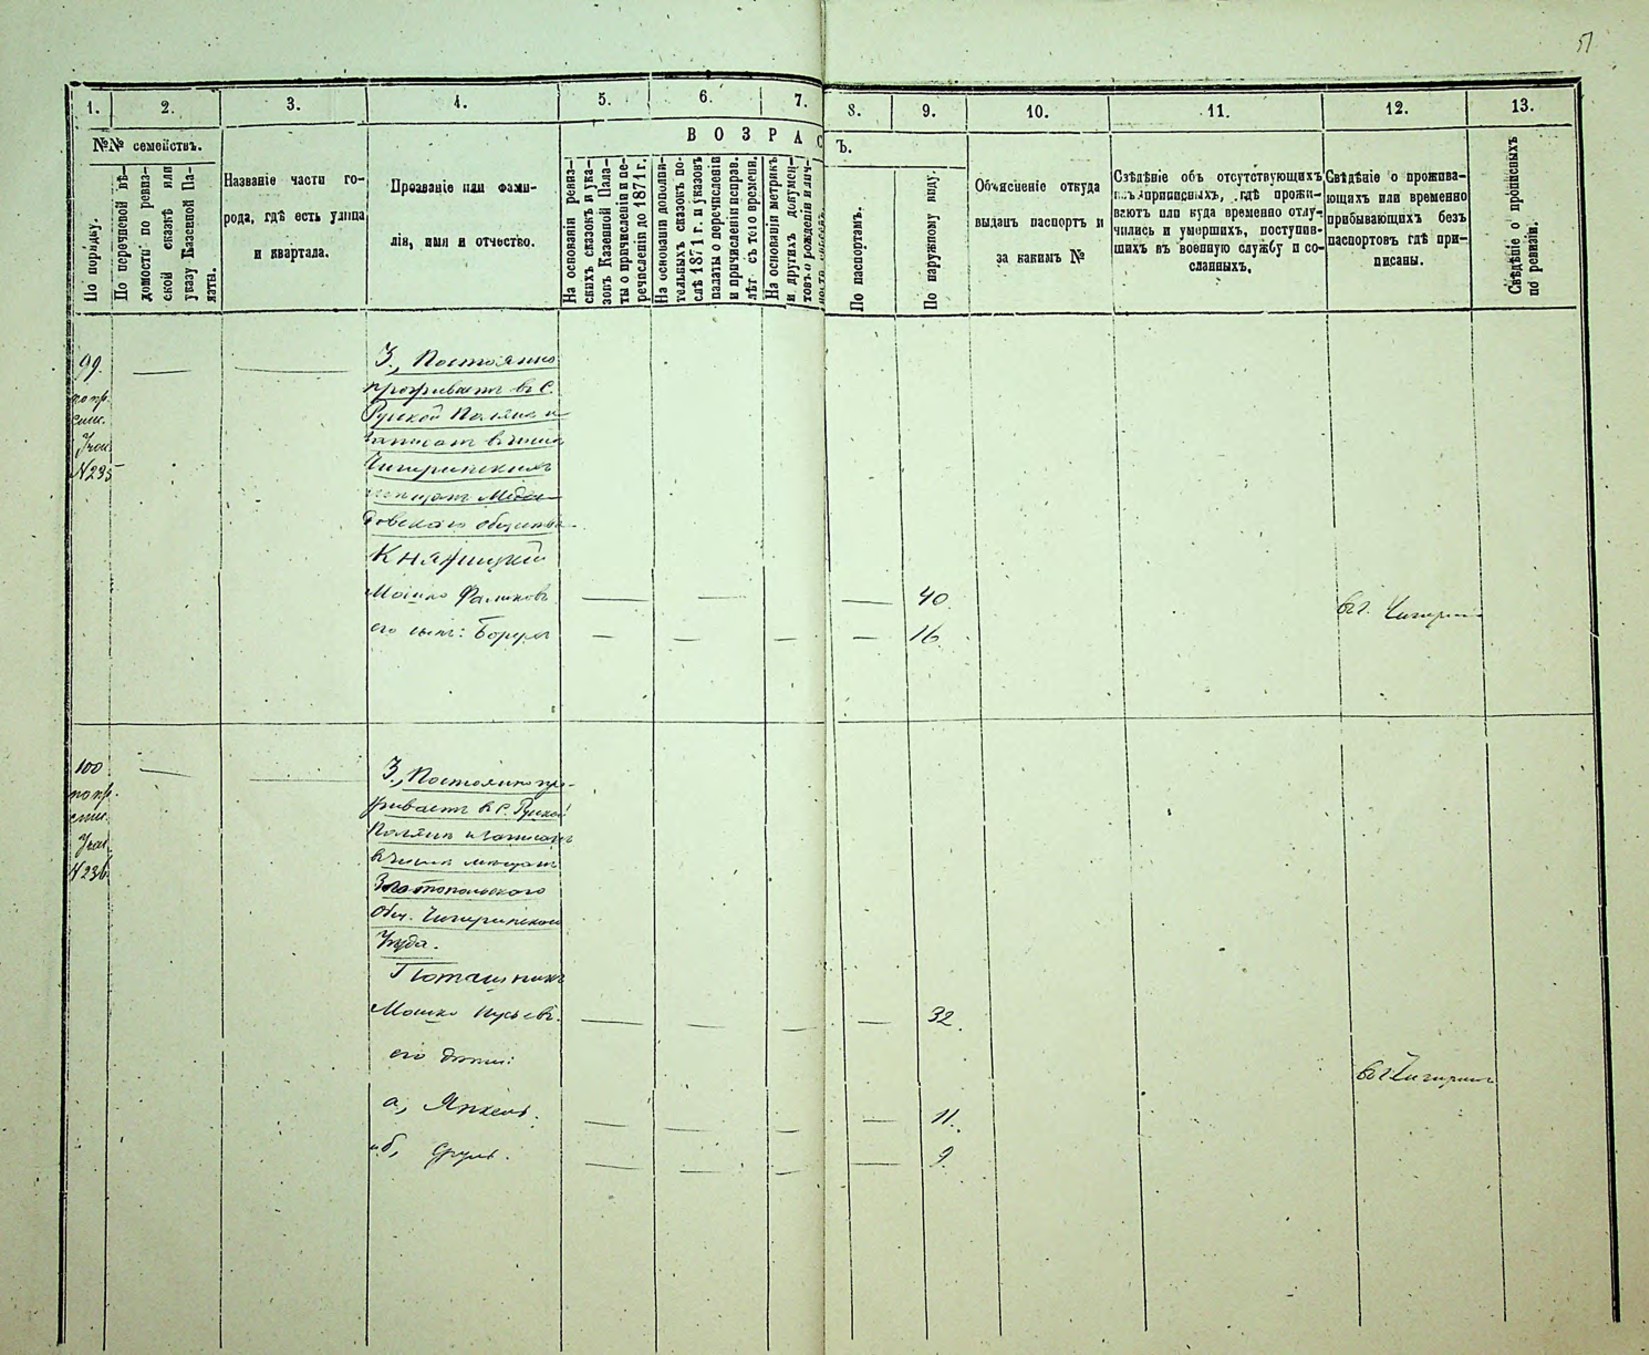 51
1. 2. 3. 4. 5. 6. 7. 8. 9. 10. 11. 12. 13.
№№ семействъ.
В О З Р А С
Ъ.
По порядку.
По перечневой вѣ-
домости по ревиз-
ской сказкѣ или
указу Казенной Па-
латы.
Названіе части го-
рода, гдѣ есть улица
и квартала.
Прозваніе или фами-
лія, имя и отчество.
На основаніи ревиз-
скихъ сказокъ и ука-
зовъ Казенной Пала-
ты о причисленіи и пе-
речисленіи до 1871 г.
На основаніи дополни-
тельныхъ сказокъ по-
слѣ 1871 г. и указовъ
палаты о перечисленіи
и причисленіи исправ.
лѣт съ того времени.
На основаніи метрикъ
и другихъ докумен-
товъ о рожденіи и лич-
По паспортамъ.
По наружному виду.
Объясненіе откуда
выданъ паспортъ и
за какимъ №
Свѣдѣніе объ отсутствующихъ
приписныхъ, гдѣ прожи-
ваютъ или куда временно отлу-
чились и умершихъ, поступив-
шихъ въ военную службу и со-
сланныхъ.
Свѣдѣніе о прожива-
ющихъ или временно
прибывающихъ безъ
паспортовъ гдѣ при-
писаны.
Свѣдѣніе о прописныхъ
по ревизіи.
99.
по пр.
спис.
№ 235
3., Постоянно
проживаетъ въ С.
Русской Полянѣ и
записанъ въ число
Чигиринскихъ
мѣщанъ Медве-
довскаго общества
Княжицкій
Мошко Фаликовъ
40.
его сынъ: Борухъ
16.
въ г. Чигиринѣ
100
по пр.
спис.
№ 236
3., Постоянно про-
живаетъ въ С. Русской
Полянѣ и записанъ
въ число мѣщанъ
Златопольскаго
Общ. Чигиринскаго
Уѣзда.
Поташникъ
Мошко Нусьевъ.
32.
его дѣти:
въ г. Чигиринѣ
а, Янкель.
11.
и б, Сруль.
9.